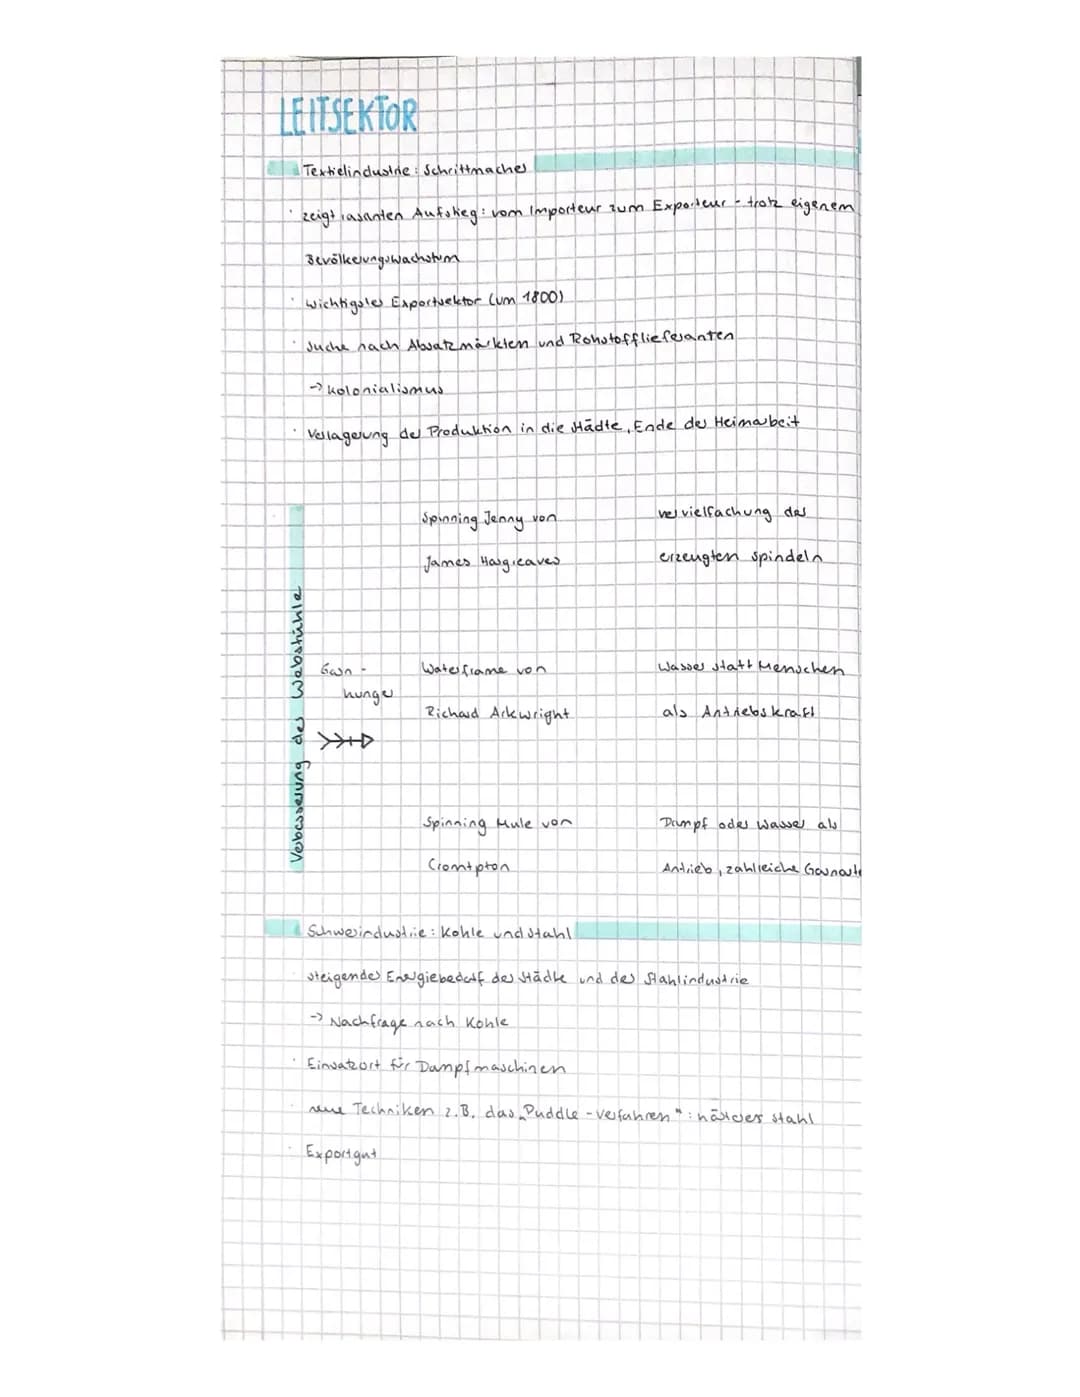 LEITSEKTOR
Textielindustrie: Schrittmacher
· zeigt rasanten Aufstieg: vom Importeur zum Exporteur - trotz eigenem
Bevölkerungswachstum
· wichtigster Exportsektor (um 1800)
· Suche nach Absatzmärkten und Rohstofflieferanten
-> Kolonialismus
· Verlagerung der Produktion in die Städte, Ende der Heimarbeit
Verbesserung des Webstühle
Garn-
hunger
Spinning Jenny von
James Hargreaves
vervielfachung der
erzeugten spindeln
Waterframe von
Richard Arkwright
Wasser statt Menschen
als Antriebskraft
Spinning Mule von
Cromtpton
Dampf oder Wasser als
Antrieb, zahlreiche Garnarte
Schwerindustrie: Kohle und Stahl
steigender Energiebedarf der Städte und der Stahlindustrie
-> Nachfrage nach Kohle
· Einsatzort für Dampfmaschinen
neue Techniken z.B. das „Puddle-verfahren": härterer Stahl
· Exportgut